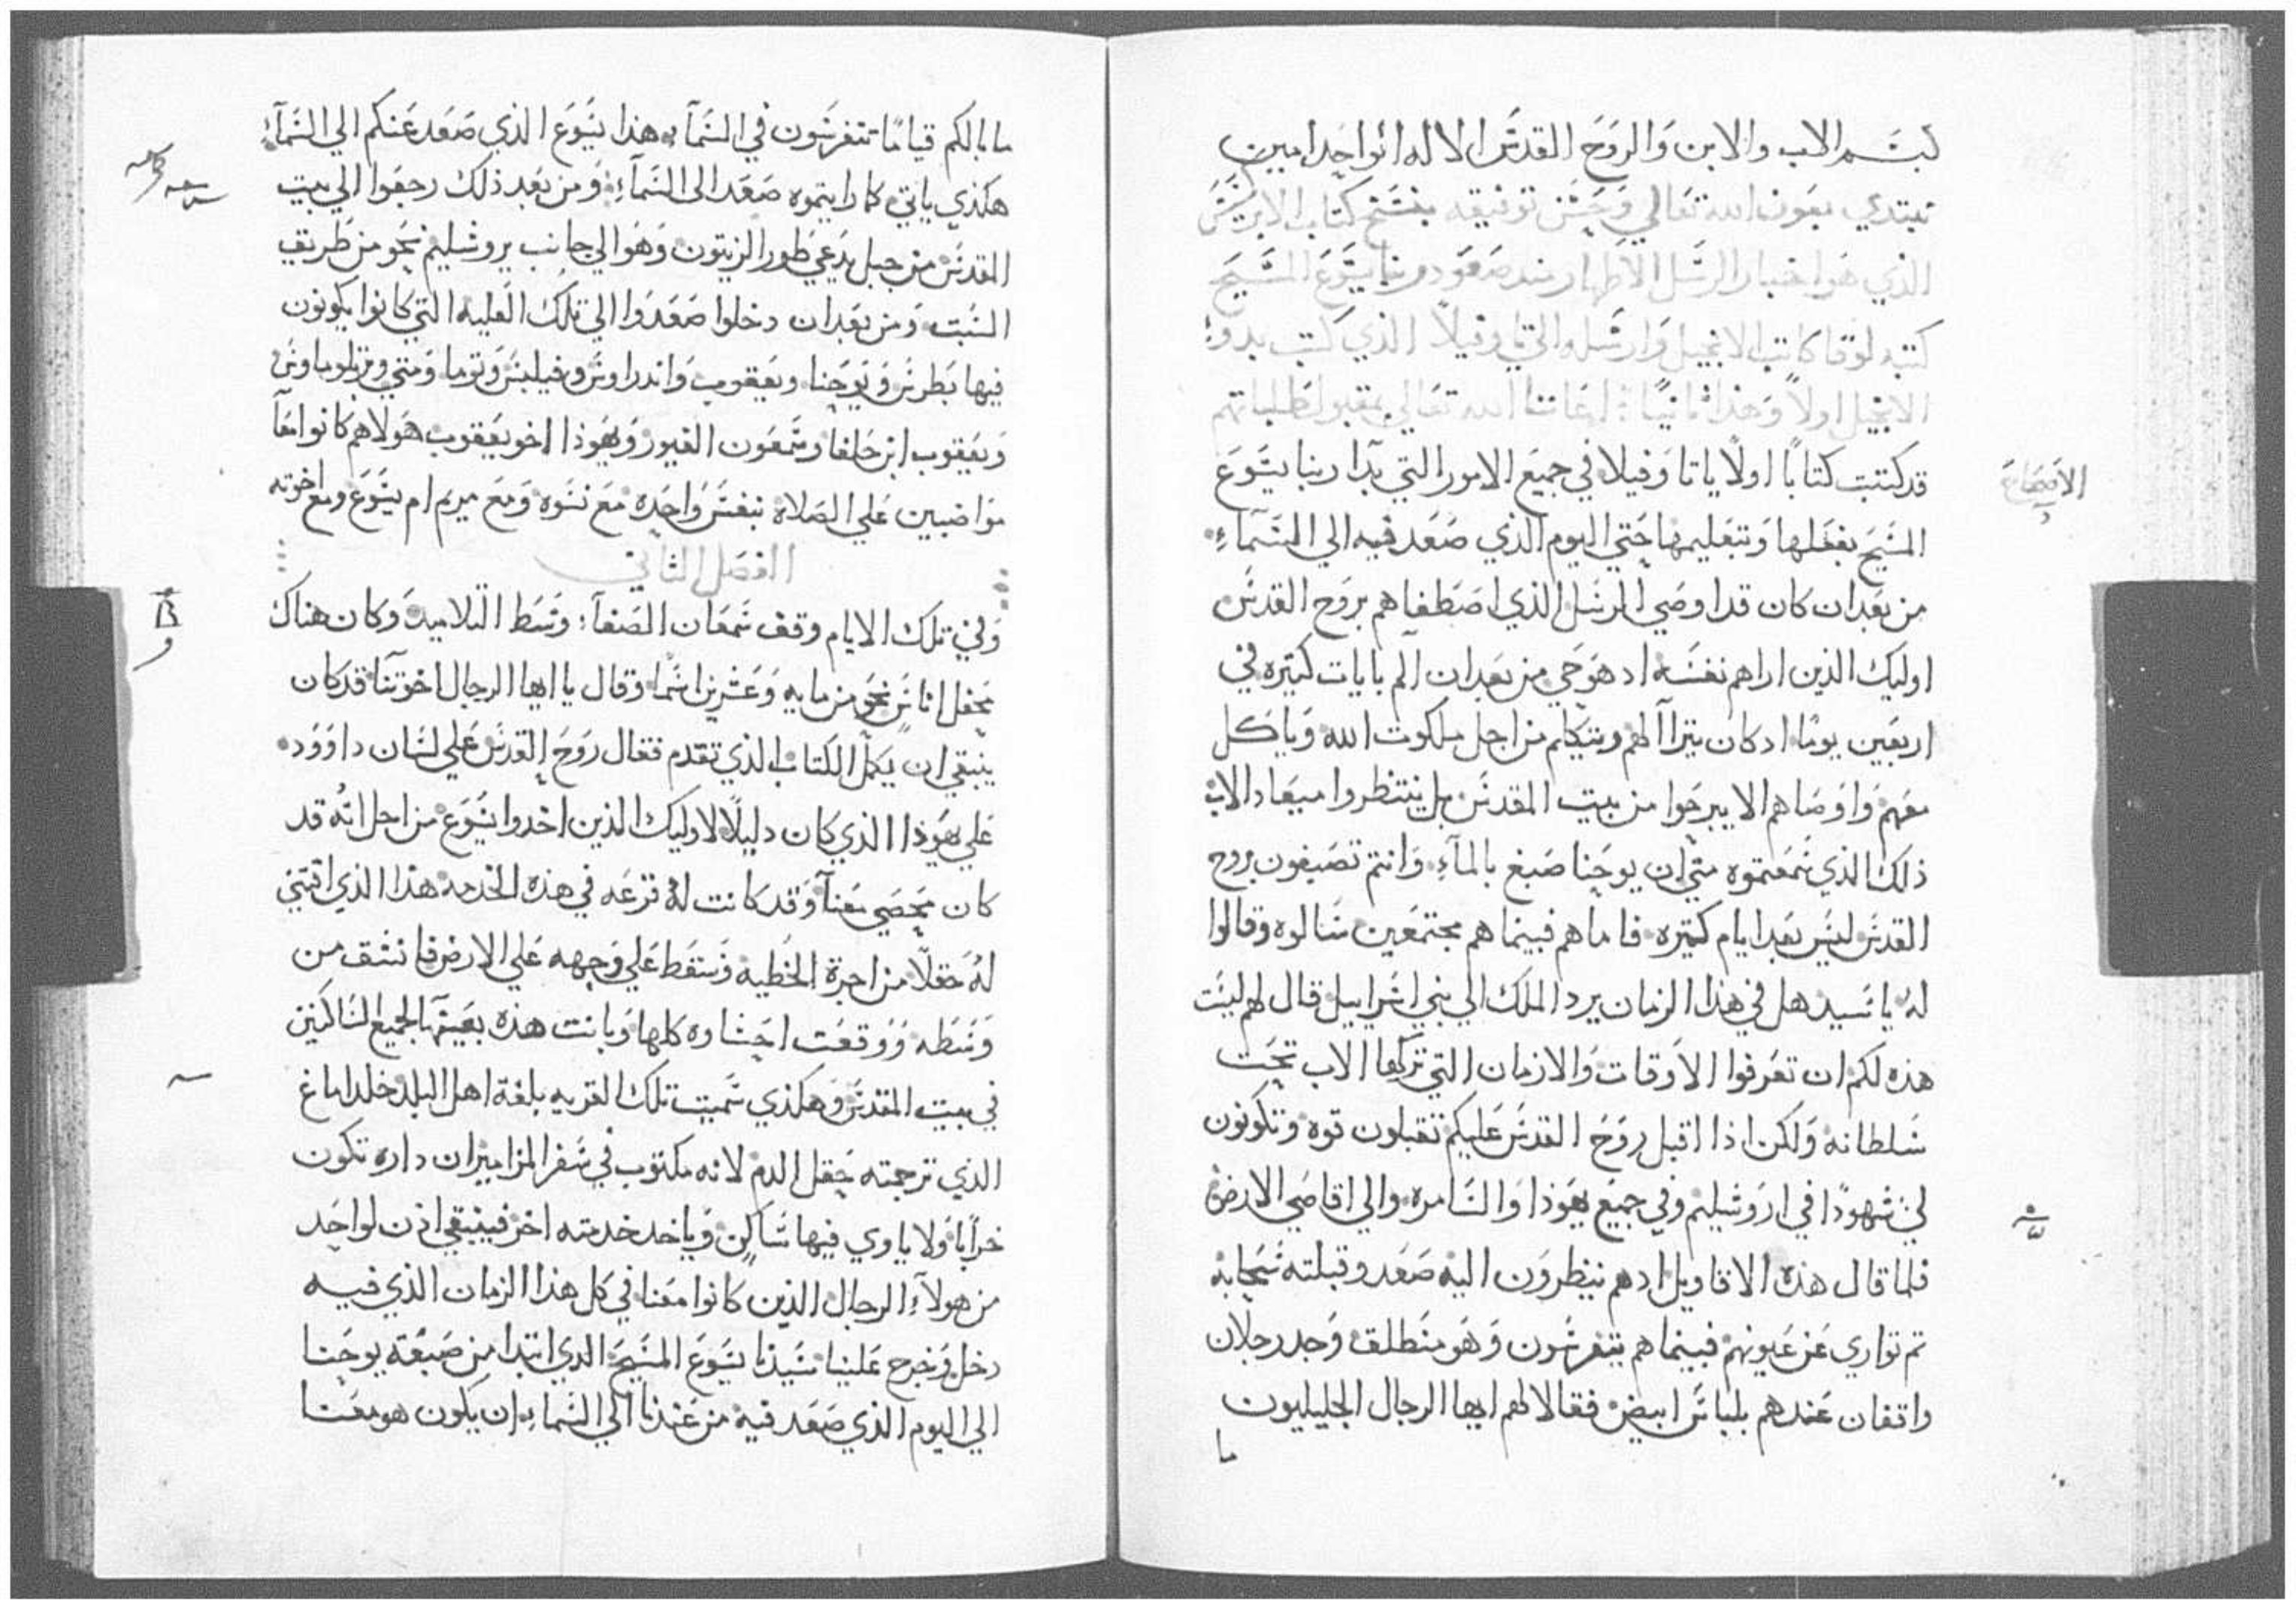 بسم الاب والابن والروح القدس الالاه الواحد امين
نبتدي بعون الله تعالي وحسن توفيقه بنسخ كتاب الابركسس
الذي هو اخبار الرسل الاطهار مند صعود ربنا يسوع المسيح
كتبه لوقا كاتب الانجيل وارسله الي تاوفيلا الذي كتب بدوء
الانجيل اولاً وهذا ثانيًا : اعاننا الله تعالي بمقبول طلباتهم
الاصحاح
قد كتبت كتابًا اولًا ياتا وفيلا في جميع الامور التي بدا ربنا يسوع
المسيح بفعلها وتتعليمها حتي اليوم الذي صعد فيه الي السماء
من بعد ان كان قد اوصي الرسل الذي اصطفاهم بروح القدس
اوليك الذين اراهم نفسه اد هو حي من بعد ان الم بايات كتيره في
اربعين يومًا اد كان يترآ الهم ويتكلم من اجل ملكوت الله وياكل
معهم واوصاهم الا يبرحوا من بيت المقدس بل ينتظروا ميعاد الاب
ذلك الذي سمعتموه مني ان يوحنا صبغ بالمآء وانتم تصبغون بروح
القدس ليس بعد ايام كتيره فاما هم فبينما هم مجتمعين سالوه وقالوا
له يا سيد هل في هذا الزمان يرد الملك الي بني اسراييل قال لهم ليست
هذه لكم ان تعرفوا الاوقات والازمان التي تركها الاب تحت
سلطانه ولكن اذا اقبل روح القدس عليكم تقبلون قوه وتكونون
لي شهودًا في اروشليم وفي جميع يهوذا والسامره والي اقاصي الارض
فلما قال هذه الاقاويل ادهم ينظرون اليه صعد وقبلته سحابة
تم تواري عن عيونهم فبينما هم يتفرسون وهو منطلق وجد رجلان
واقفان عندهم بلباس ابيض فقالا لهم ايها الرجال الجليليون
ما
ما بالكم قيامًا تتفرسون في السمآ هذا يسوع الذي صعد عنكم الي السمآء
هكذي ياتي كما رايتموه صعد الى السمآء ومن بعد ذلك رجعوا الي بيت
المقدس من جبل يدعي طور الزيتون وهو الي جانب يروشليم نحو من طريق
السبت ومن بعد ان دخلوا صعدوا الي تلك العليه التي كانوا يكونون
فيها بطرس ويوحنا ويعقوب واندراوس وفيلبس وتوما ومتي وبرتلوماوس
ويعقوب ابن حلفا وسمعون الغيور ويهوذا اخو يعقوب هولاهم كانوا معًا
مواضبين علي الصلاة بنفس واحده مع نسوه ومع مريم ام يسوع ومع اخوته
الفصل الثاني
وفي تلك الايام وقف سمعان الصفآ : وسط التلاميد وكان هناك
محفل اناس نحو من مايه وعشرين اسما وقال يا ايها الرجال اخوتنا قد كان
ينبغي ان يكمل الكتاب الذي تقدم فقال روح القدس علي لسان داوود
علي يهوذا الذي كان دليلًا لاوليك الذين اخدوا يسوع من اجل انه قد
كان محصي معنآ وقد كانت له قرعه في هذه الخدمه هذا الذي اقتني
له حقلًا من اجرة الخطيه وسقط علي وجهه علي الارض فانشق من
وسطه ووقعت احشاوه كلها وبانت هذه بعينها لجميع الساكنين
في بيت المقدس وهكذي سميت تلك القريه بلغة اهل البلد خلداماغ
الذي ترجمته حقل الدم لانه مكتوب في سفر المزامير ان داره تكون
خرابًا ولا ياوي فيها ساكن وياخد خدمته اخر فينبغي اذن لواحد
من هولآء الرجال الذين كانوا معنا في كل هذا الزمان الذي فيه
دخل وخرج علينا سيدنا يسوع المسيح الدي ابتدا من صبغة يوحنا
الي اليوم الذي صعد فيه من عندنا الي السماء ان يكون هو معنا